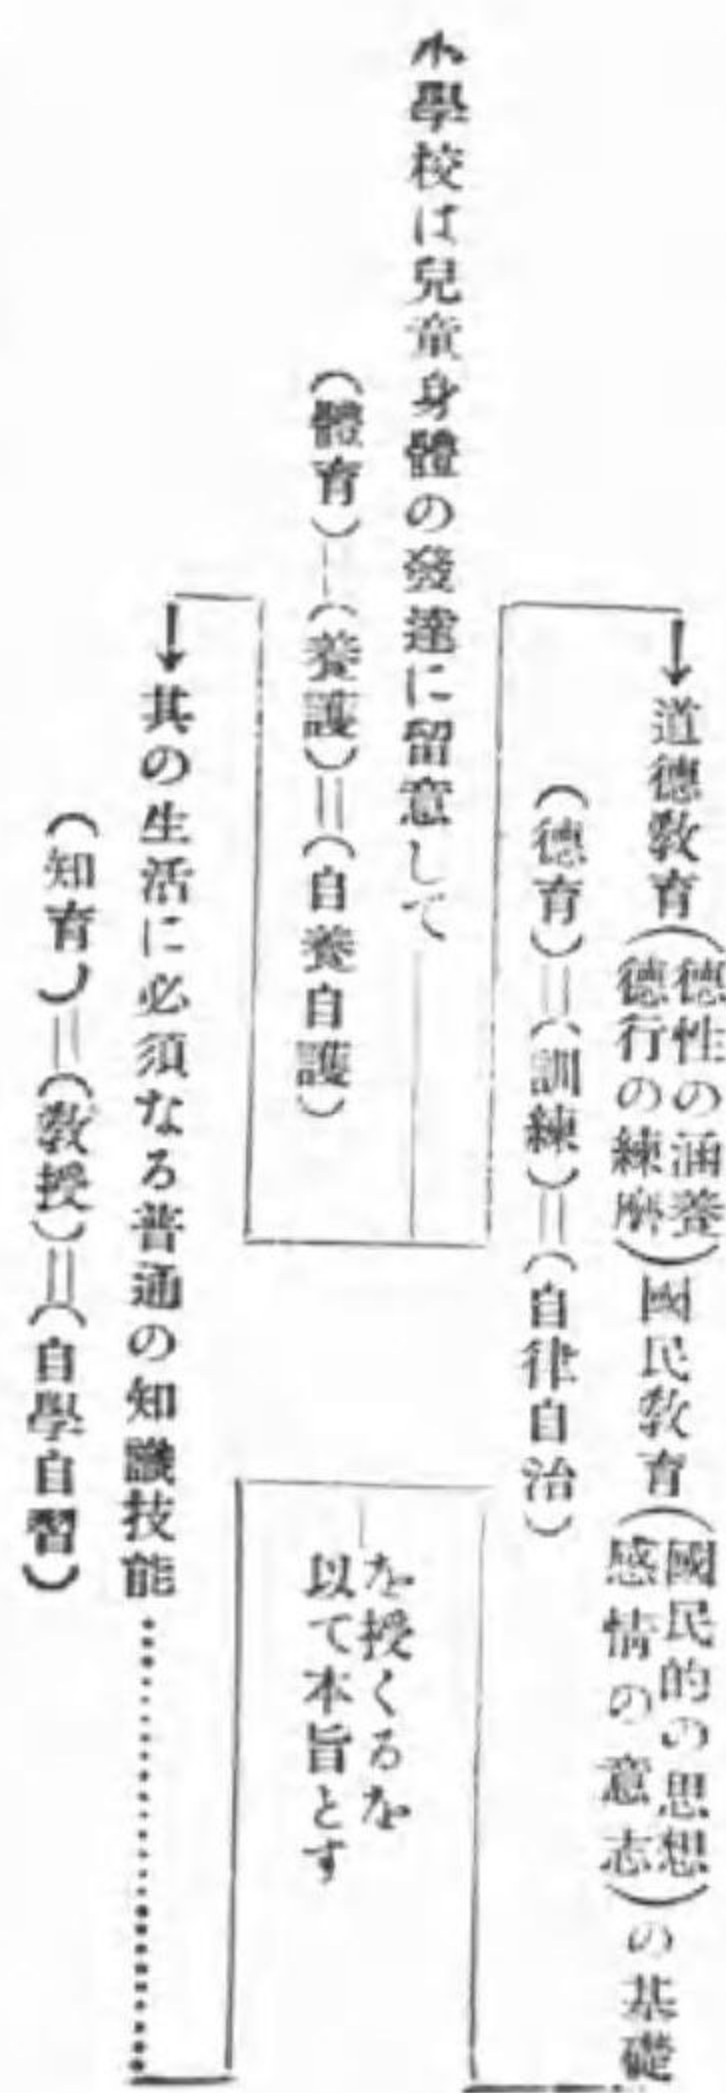 道德敎育(德性の涵養
德行の練磨)國民敎育(國民的の思想
感情の意志)の基礎
(德育)=(訓練)=(自律自治)
小學校は兒童身體の發達に留意して
を授くるを
以て本旨とす
(體育)=(養護)=(自養自護)
其の生活に必須なる普通の知識技能
(知育)=(敎授)=(自學自習)